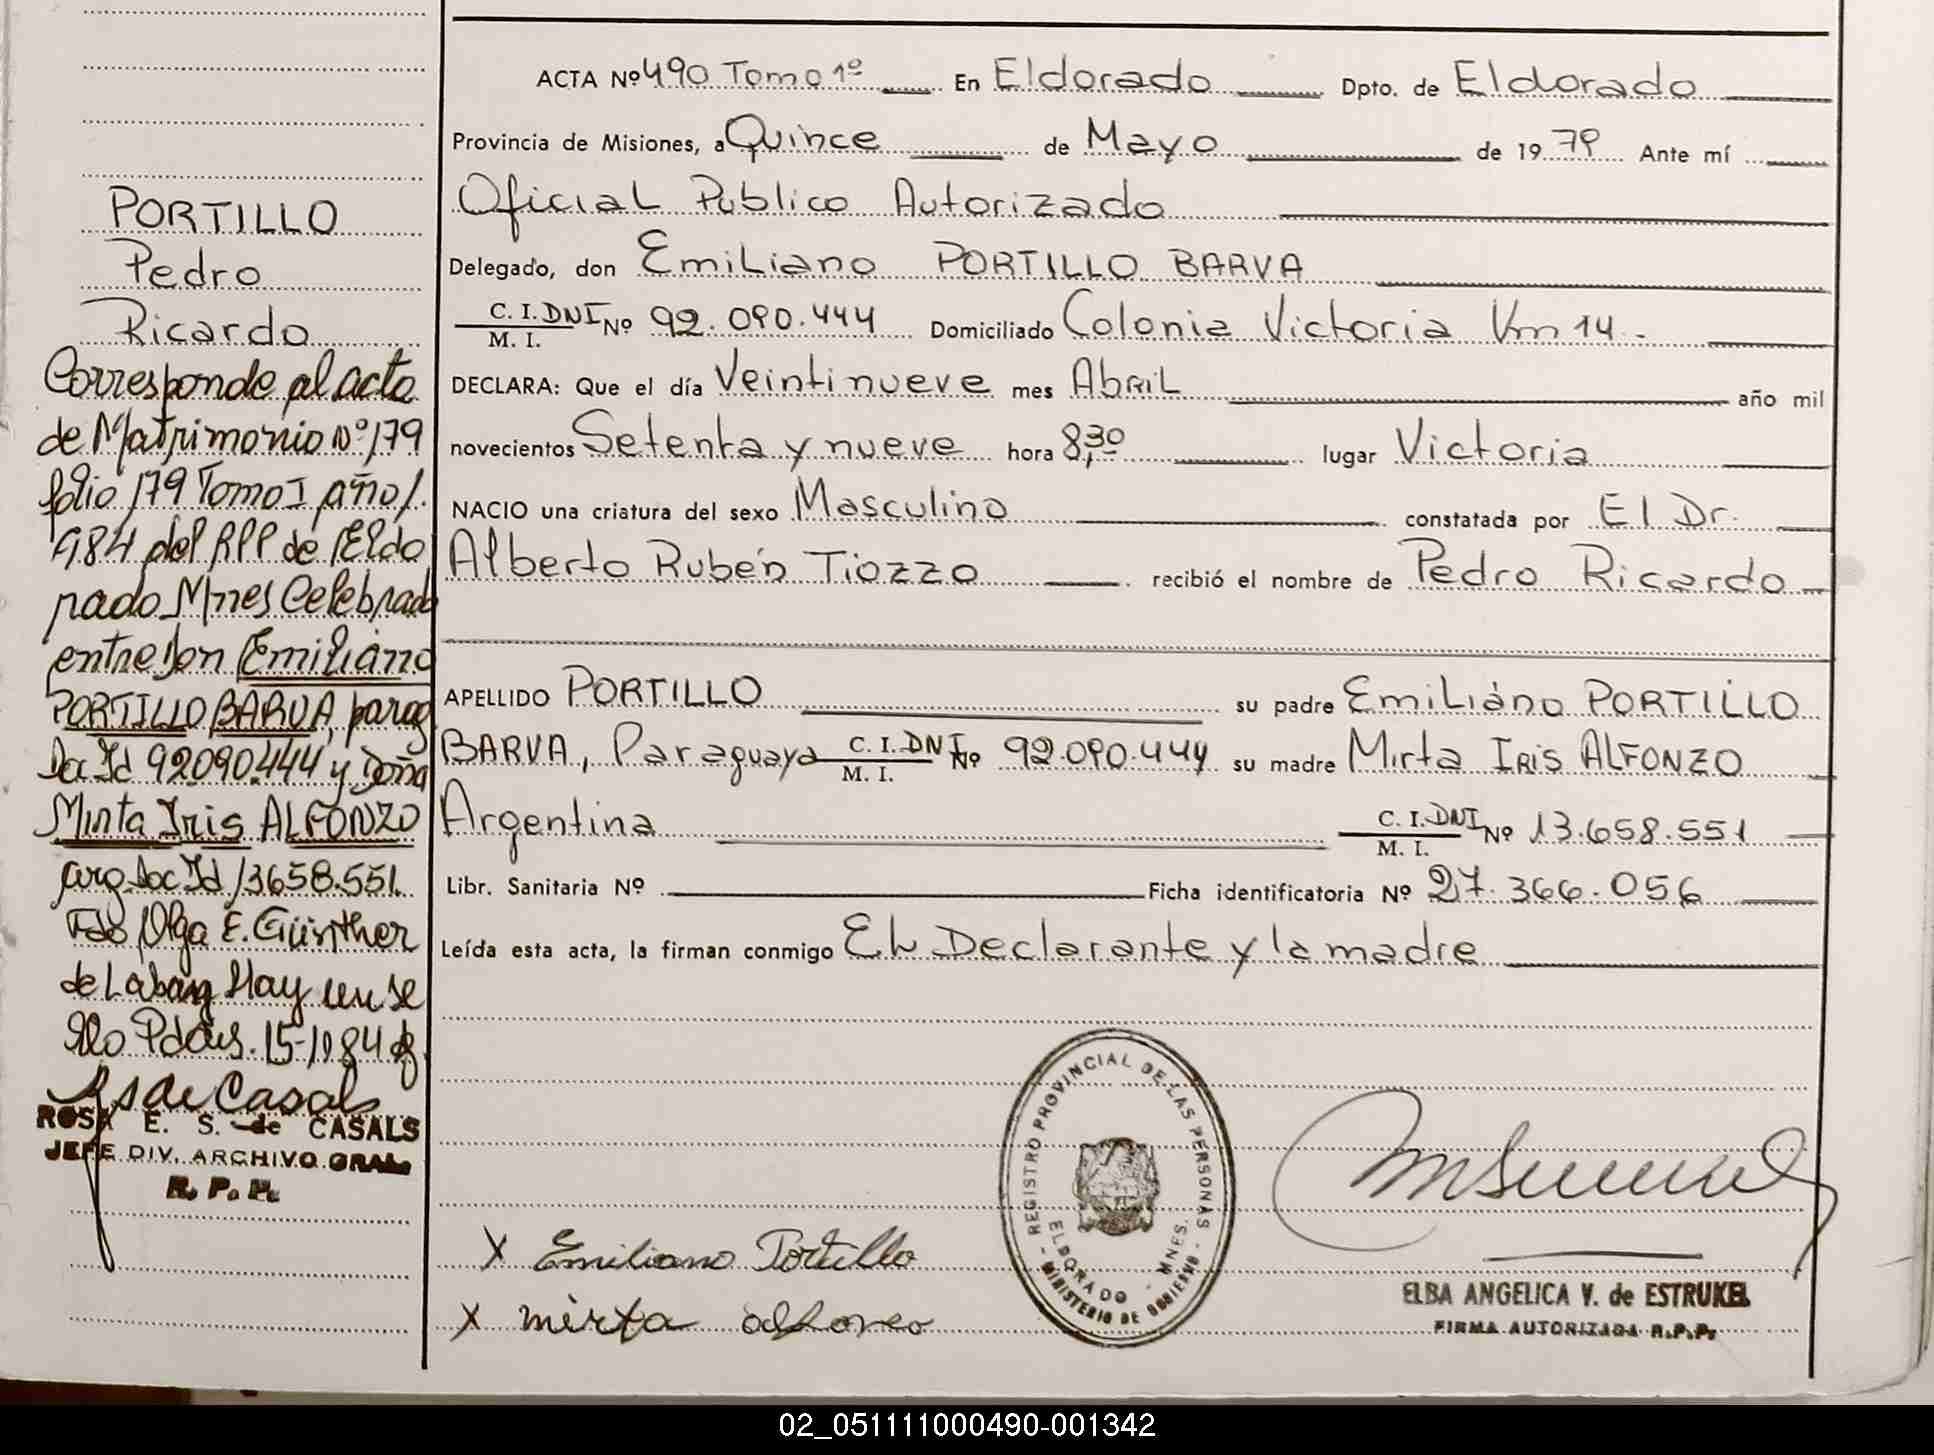 PORTILLO
Pedro
Ricardo
Corresponde al acta
de Matrimonio Nº 179
folio 179 Tomo I año 1.
984 del RPP de Eldo
rado Mnes Celebrado
entre Don Emiliano
PORTILLO BARVA, parag
Doc Id 92090.444 y Doña
Mirta Iris ALFONZO
arg Doc Id 13658.551.
Fdo Olga E. Günther
de Labang Hay un se
llo Pdas. 15-10 84
RS de Casals
ROSA E. S. de CASALS
JEFE DIV. ARCHIVO GRAL.
R. P. P.
ACTA Nº 490 Tomo 1º En Eldorado Dpto. de Eldorado
Provincia de Misiones, a Quince de Mayo de 1979 Ante mí
Oficial Publico Autorizado
Delegado, don Emiliano PORTILLO BARVA
C. I. DNI M. I. Nº 92.090.444 Domiciliado Colonia Victoria Km 14.
DECLARA: Que el día Veintinueve mes Abril año mil
novecientos Setenta y nueve hora 8,30 lugar Victoria
NACIO una criatura del sexo Masculino constatada por El Dr.
Alberto Rubén Tiozzo recibió el nombre de Pedro Ricardo
APELLIDO PORTILLO su padre Emiliano PORTILLO
BARVA, Paraguayo C. I. DNI M. I. Nº 92.090.444 su madre Mirta Iris ALFONZO
Argentina C. I. DNI M. I. Nº 13.658.551
Libr. Sanitaria Nº Ficha identificatoria Nº 27.366.056
Leída esta acta, la firman conmigo El Declarante y la madre
REGISTRO PROVINCIAL DE LAS PERSONAS
ELDORADO - MNES.
MINISTERIO DE GOBIERNO
X Emiliano Portillo
X mirta alfonso
ELBA ANGELICA V. de ESTRUKEL
FIRMA AUTORIZADA R.P.P.
02_051111000490-001342